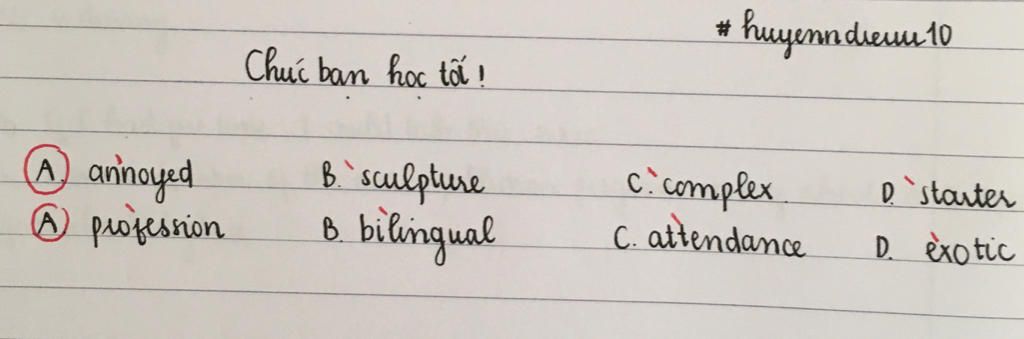 # huyenndieuu10
Chúc bạn học tốt!
A. annoyed B. 'sculpture C. 'complex D. 'starter
A. profession B. bilingual C. attendance D. exotic